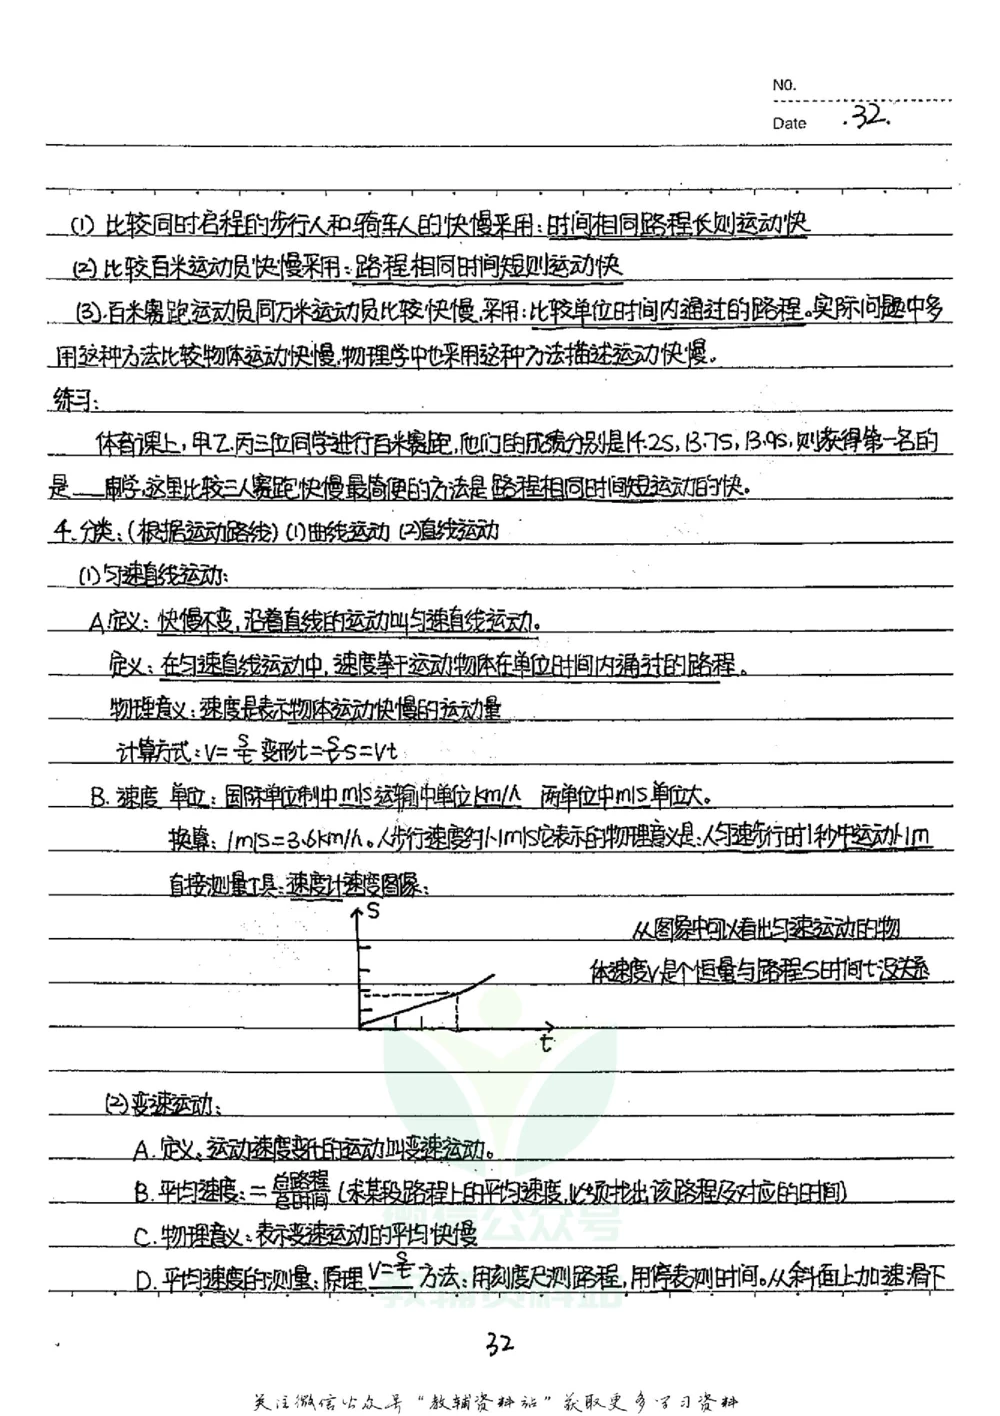 NO.
Date .32.
(1) 比较同时启程的步行人和骑车人的快慢采用：时间相同路程长则运动快
(2) 比较百米运动员快慢采用：路程相同时间短则运动快
(3).百米赛跑运动员同万米运动员比较快慢,采用：比较单位时间内通过的路程。实际问题中多
用这种方法比较物体运动快慢,物理学中也采用这种方法描述运动快慢。
练习：
体育课上，甲.乙.丙三位同学进行百米赛跑,他们的成绩分别是14.2S,13.7S,13.9S,则获得第一名的
是__同学,这里比较三人赛跑快慢最简便的方法是路程相同时间短运动的快。
4.分类：(根据运动路线) (1)曲线运动 (2)直线运动
(1)匀速直线运动：
A.定义：快慢不变,沿着直线的运动叫匀速直线运动。
定义：在匀速直线运动中,速度等于运动物体在单位时间内通过的路程。
物理意义：速度是表示物体运动快慢的运动量
计算方式：V=S/t 变形t=S/v S=Vt
B. 速度 单位：国际单位制中m/s运输中单位km/h 两单位中m/s单位大。
换算：1m/s=3.6km/h。人步行速度约1.1m/s它表示的物理意义是：人匀速步行时1秒中运动1.1m
直接测量工具：速度计速度图像：
S
从图象中可以看出匀速运动的物
体速度V是个恒量与路程S时间t没关系
t
(2)变速运动：
A.定义：运动速度变化的运动叫变速运动。
B.平均速度：=总路程/总时间 (求某段路程上的平均速度,必须找出该路程及对应的时间)
C.物理意义：表示变速运动的平均快慢
D.平均速度的测量：原理 V=S/t 方法：用刻度尺测路程,用停表测时间。从斜面上加速滑下
32
关注微信公众号“教辅资料站”获取更多学习资料